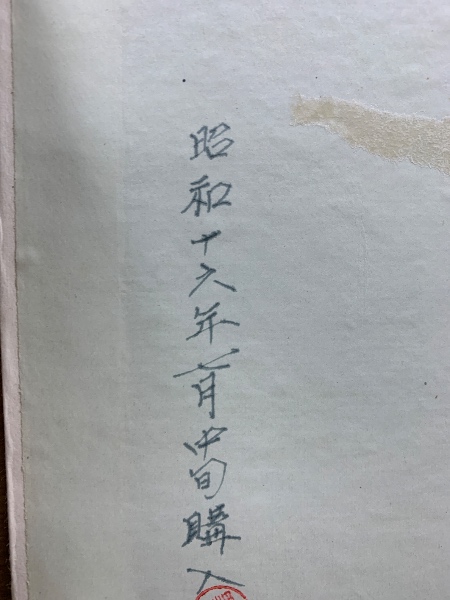 昭和十六年七月中旬購入